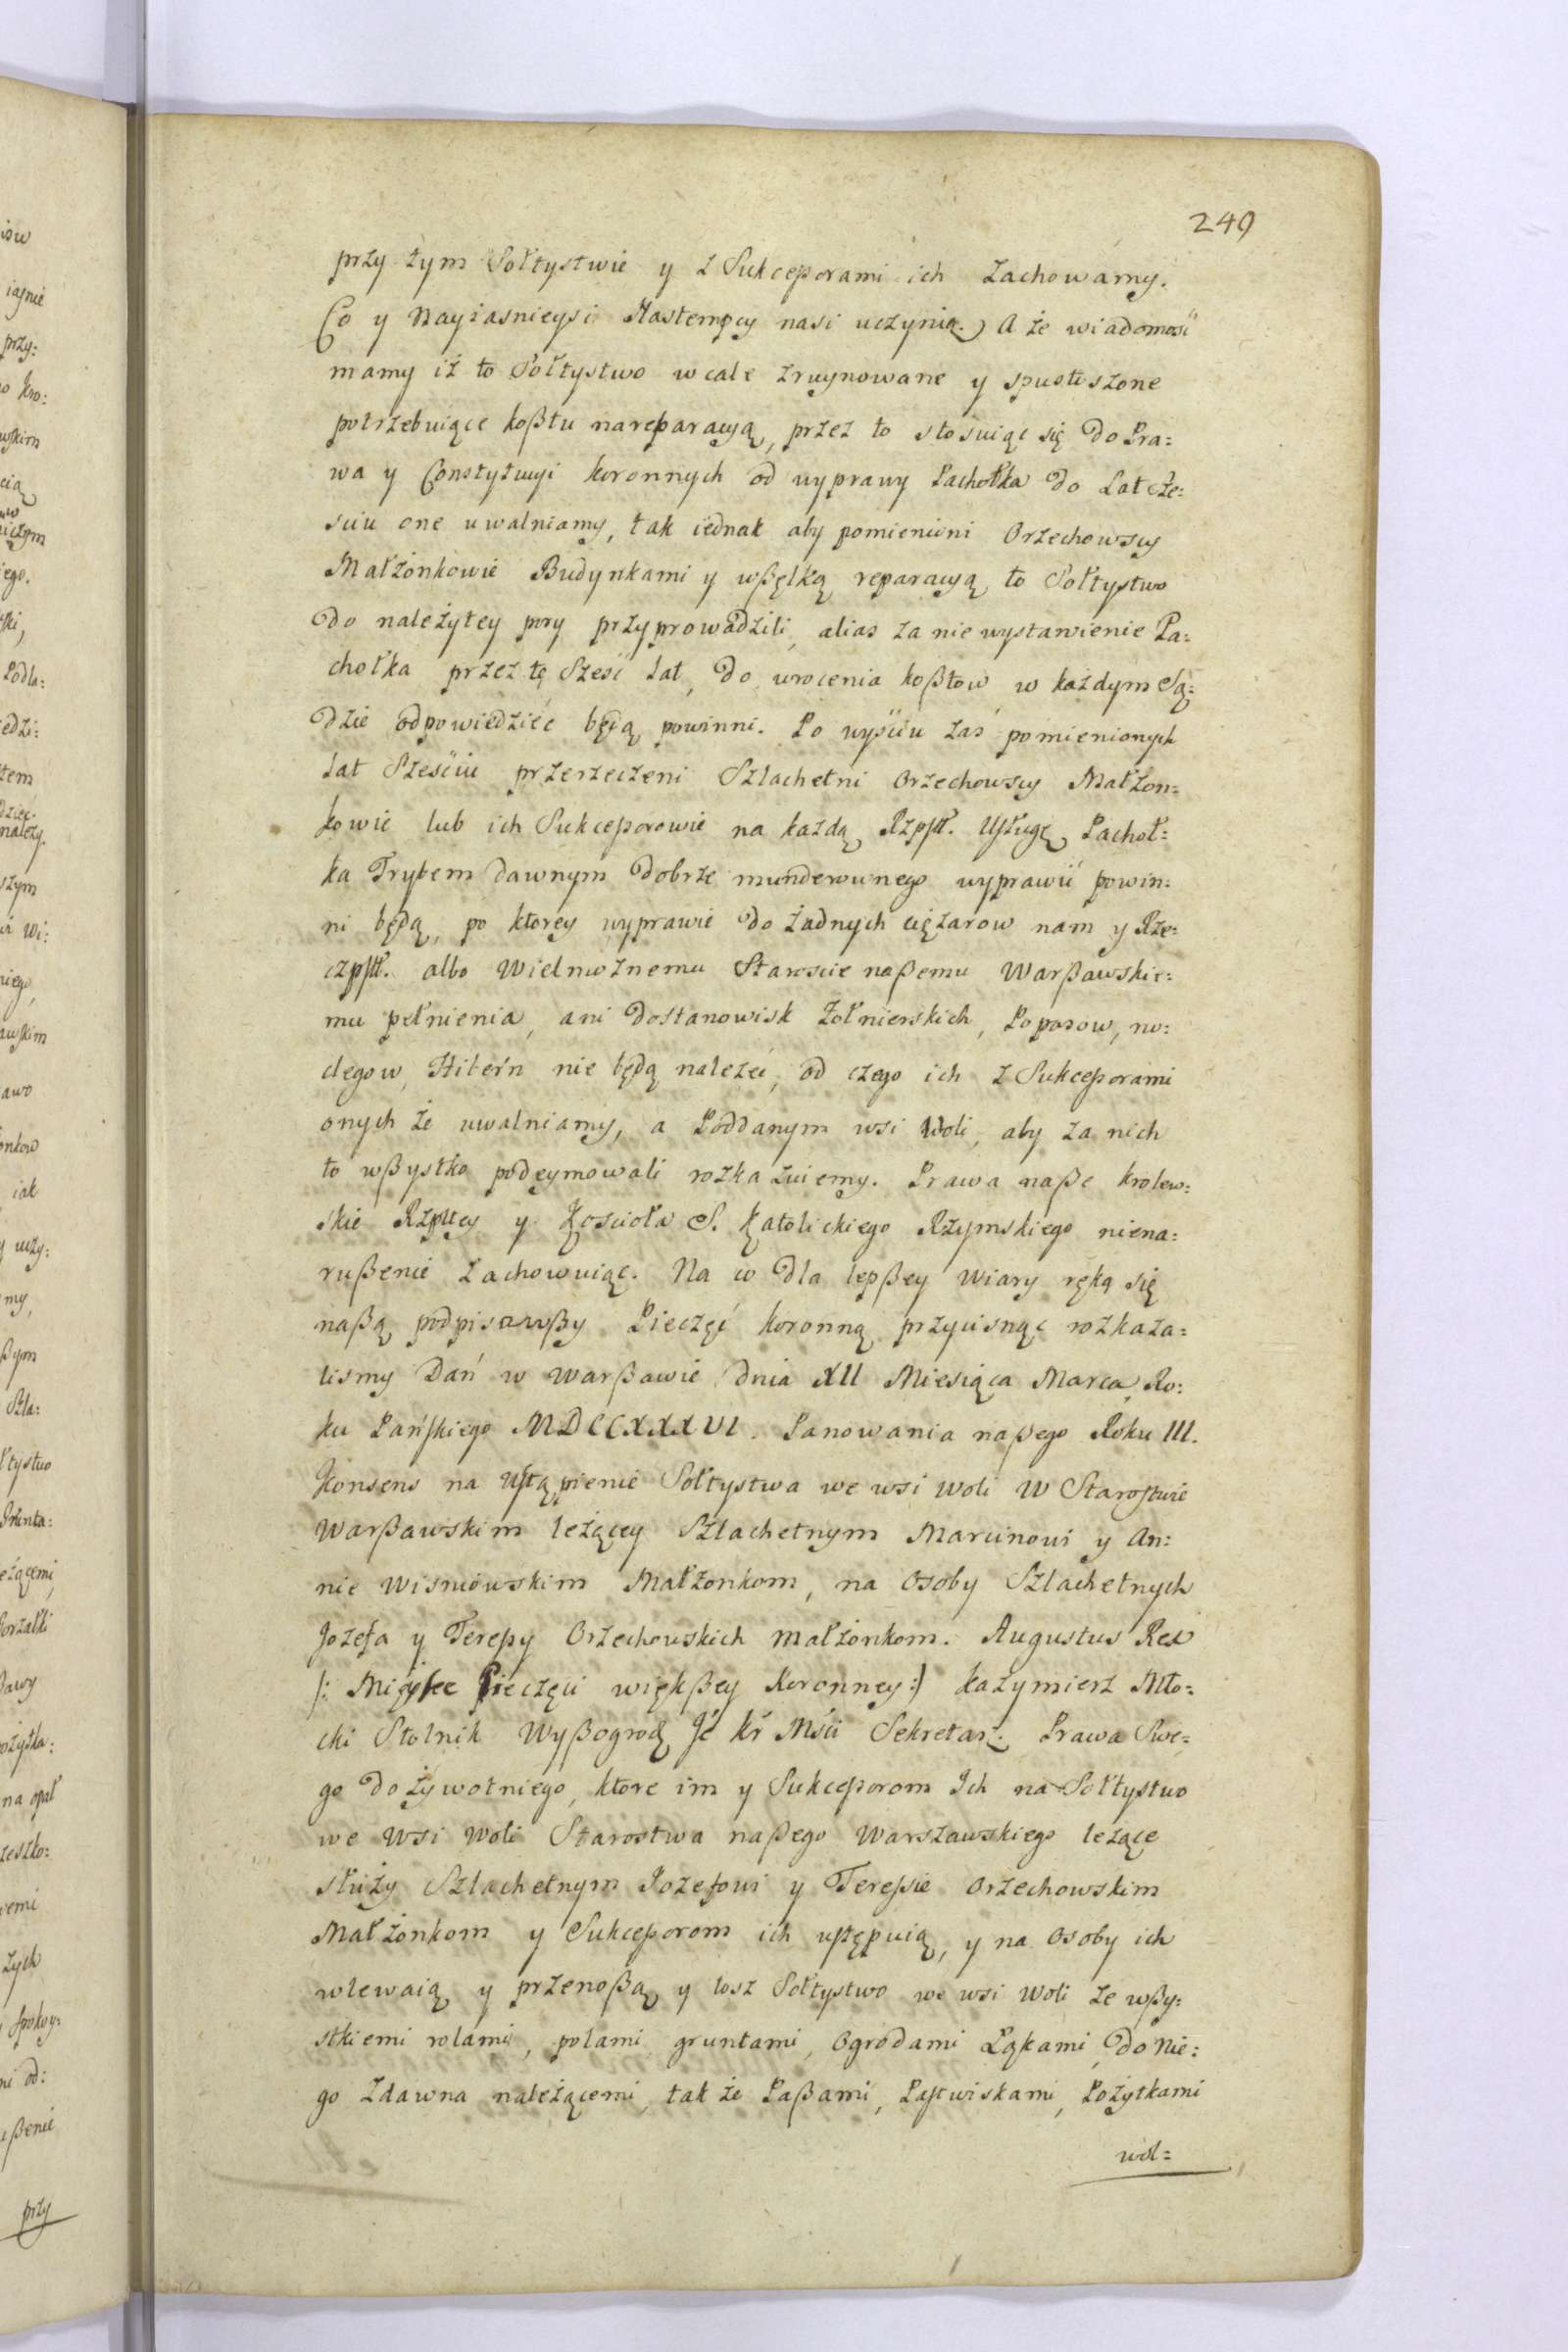 249
przy tym Sołtystwie y z Sukceßorami ich zachowamy.
Co y Nayiasnieysi Następcy nasi uczynią.) A że wiadomość
mamy iż to Sołtystwo wcale zruynowane y spustoszone
potrzebuiące koßtu nareparacyą, przez to stosuiąc się do Pra=
wa y Constytucyi koronnych od wyprawy Pachołka do Lat sze=
sciu one uwalniamy, tak iednak aby pomienieni Orzechowscy
Małżonkowie Budynkami y wßelką reparacyą to Sołtystwo
do należytey pory przyprowadzili, alias za nie wystawienie Pa=
chołka przez tę Sześć lat, do wrocenia koßtow w każdym Są=
dzie odpowiedzieć będą powinni. Po wyściu zaś pomienionych
lat Sześciu przerzeczeni Szlachetni Orzechowscy Małżon=
kowie lub ich Sukceßorowie na każdą Rzpltt. Usługę Pachoł=
ka Trybem dawnym dobrze munderownego wyprawić powin=
ni będą, po ktorey wyprawie do żadnych ciężarow nam y Rze=
czpltt. albo Wielmożnemu Staroscie naßemu Warßawskie=
mu pełnienia, ani dostanowisk Żołnierskich, Popasow, no=
clegow, Hibern nie będą należeć, od czego ich z Sukceßorami
onych że uwalniamy, a Poddanym wsi Woli, aby za nich
to wßystko podeymowali rozkazuiemy. Prawa naße krolew=
skie Rzpltey y Kościoła S. Katolickiego Rzymskiego niena=
rußenie zachowuiąc. Na co dla lepßey wiary ręką się
naßą podpisawßy Pieczęć koronną przycisnąc rozkaza=
lismy Dań w Warßawie dnia XII Miesiąca Marca Ro=
ku Pańskiego MDCCXXXVI. Panowania naßego Roku III.
Konsens na Ustąpienie Sołtystwa we wsi Woli w Starostwie
Warßawskim leżącey Szlachetnym Marcinowi y An=
nie Wisniowskim Małżonkom, na Osoby Szlachetnych
Jozefa y Tereßy Orzechowskich małżonkom. Augustus Rex
/: Mieysce Pieczęci więkßey Koronney :/ Kazymierz Mło=
cki Stolnik Wyßogrodz Jé Kr Mśći Sekretarz. Prawa Swe=
go dożywotniego, ktore im y Sukceßorom Ich na Sołtystwo
we Wsi Woli Starostwa naßego Warszawskiego leżące
służy Szlachetnym Jozefowi y Tereßie Orzechowskim
Małżonkom y Sukceßorom ich ustępuią, y na Osoby ich
wlewaią y przenoßą y tosz Sołtystwo we wsi Woli ze wßy=
stkiemi rolami, polami gruntami, Ogrodami Łąkami, do Nie=
go zdawna należącemi, tak że Laßami, Pastwiskami, Pożytkami
wol=